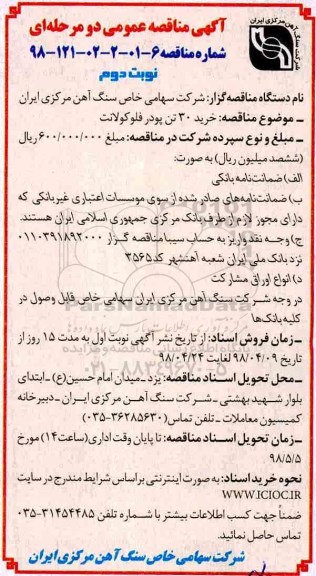 شرکت سنگ آهن مرکزی ایران
آگهی مناقصه عمومی دو مرحله‌ای
شماره مناقصه ۶-۰۱-۲-۰۲-۱۲۱-۹۸
نوبت دوم
نام دستگاه مناقصه‌گزار: شرکت سهامی خاص سنگ آهن مرکزی ایران
ـ موضوع مناقصه: خرید ۳۰ تن پودر فلوکولانت
ـ مبلغ و نوع سپرده شرکت در مناقصه: مبلغ ۶۰۰/۰۰۰/۰۰۰ ریال
(ششصد میلیون ریال) به صورت:
الف) ضمانت‌نامه بانکی
ب) ضمانت‌نامه‌های صادر شده از سوی موسسات اعتباری غیربانکی که
دارای مجوز لازم از طرف بانک مرکزی جمهوری اسلامی ایران هستند.
ج) وجه نقد واریز به حساب سیبا مناقصه گزار ۰۱۱۰۳۹۱۸۹۲۰۰۰
نزد بانک ملی ایران شعبه آهنشهر کد ۳۵۶۳
د) انواع اوراق مشارکت
در وجه شرکت سنگ آهن مرکزی ایران سهامی خاص قابل وصول در
کلیه بانک‌ها
ـ زمان فروش اسناد: از تاریخ نشر آگهی نوبت اول به مدت ۱۵ روز از
تاریخ ۹۸/۰۴/۰۹ لغایت ۹۸/۰۴/۲۴
ـ محل تحویل اسناد مناقصه: یزد ـ میدان امام حسین(ع) ـ ابتدای
بلوار شهید بهشتی ـ شرکت سنگ آهن مرکزی ایران ـ دبیرخانه
کمیسیون معاملات ـ تلفن تماس (۳۶۲۸۵۶۳۰-۰۳۵)
ـ زمان تحویل اسناد مناقصه: تا پایان وقت اداری (ساعت ۱۴) مورخ
۹۸/۵/۵
نحوه خرید اسناد: به صورت اینترنتی براساس شرایط مندرج در سایت
WWW.ICIOC.IR
ضمناً جهت کسب اطلاعات بیشتر با شماره تلفن ۳۱۴۵۴۴۸۵-۰۳۵
تماس حاصل نمائید.
شرکت سهامی خاص سنگ آهن مرکزی ایران
ParsNamadData
۰۲۱-۸۸۳۴۹۶۷۰-۵